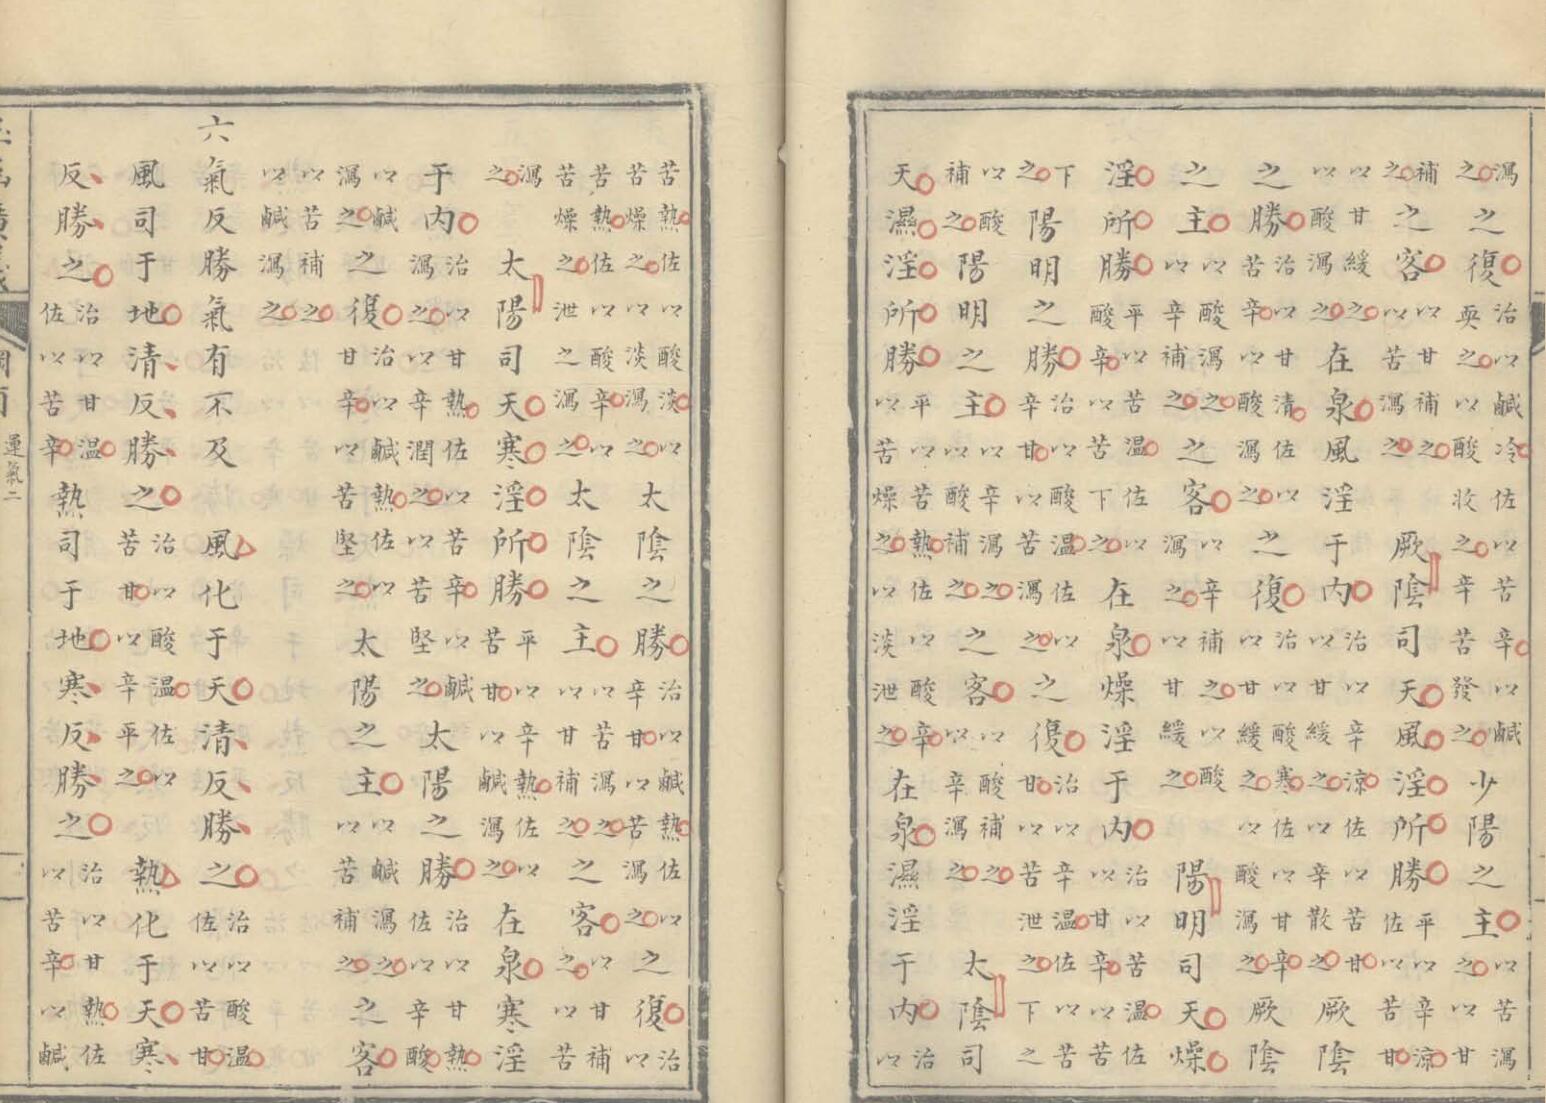 瀉之之復治以鹹冷佐以苦辛以鹹耎之以酸收之辛苦發之少陽之主以苦瀉之以甘
補之之客以甘補之以苦瀉之厥陰司天風淫所勝平以辛涼佐以苦甘
以甘緩之以酸瀉之在泉風淫于內治以辛涼佐以苦甘以甘緩之以辛散之厥陰
之勝治以甘清佐以苦辛以酸瀉之之復治以酸寒佐以甘辛以甘緩之以酸瀉之厥陰
之主以酸瀉之以辛補之之客以辛補之以酸瀉之以甘緩之陽明司天燥
淫所勝平以苦溫佐以酸辛以苦下之在泉燥淫于內治以苦溫佐以甘辛以苦
下之陽明之勝治以酸溫佐以辛甘以苦瀉之之復治以辛溫佐以苦甘以苦泄之下之
以酸補之陽明之主以辛瀉之以酸補之之客以酸補之以辛瀉之太陰司
天濕淫所勝平以苦熱佐以酸辛以苦燥之以淡泄之在泉濕淫于內治以
苦熱佐以酸淡以苦燥之以淡瀉之太陰之勝治以鹹熱佐以辛甘以苦瀉之之復治以
苦熱佐以酸辛以苦燥之泄之瀉之太陰之主以苦瀉之以甘補之之客以甘補之以苦
瀉之太陽司天寒淫所勝平以辛熱佐以苦甘以鹹瀉之在泉寒淫
于內治以甘熱佐以苦辛以鹹瀉之以辛潤之以苦堅之太陽之勝治以甘熱佐以辛酸
以鹹瀉之之復治以鹹熱佐以甘辛以苦堅之太陽之主以鹹瀉之以苦補之之客
以苦補之以鹹瀉之
六氣反勝氣有不及風化于天清反勝之治以酸溫佐以苦甘
風司于地清反勝之治以酸溫佐以苦甘以辛平之熱化于天寒
反勝之治以甘溫佐以苦辛熱司于地寒反勝之治以甘熱佐以苦辛以鹹
運氣二